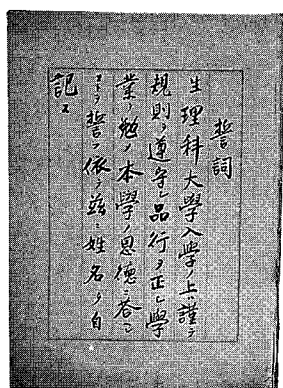 誓詞
生理科大學入學ノ上ハ謹テ
規則ヲ遵守シ品行ヲ正シ學
業ヲ勉メ本學ノ恩德ニ答ヘン
ヿヲ誓フ依テ茲ニ姓名ヲ自
記ス